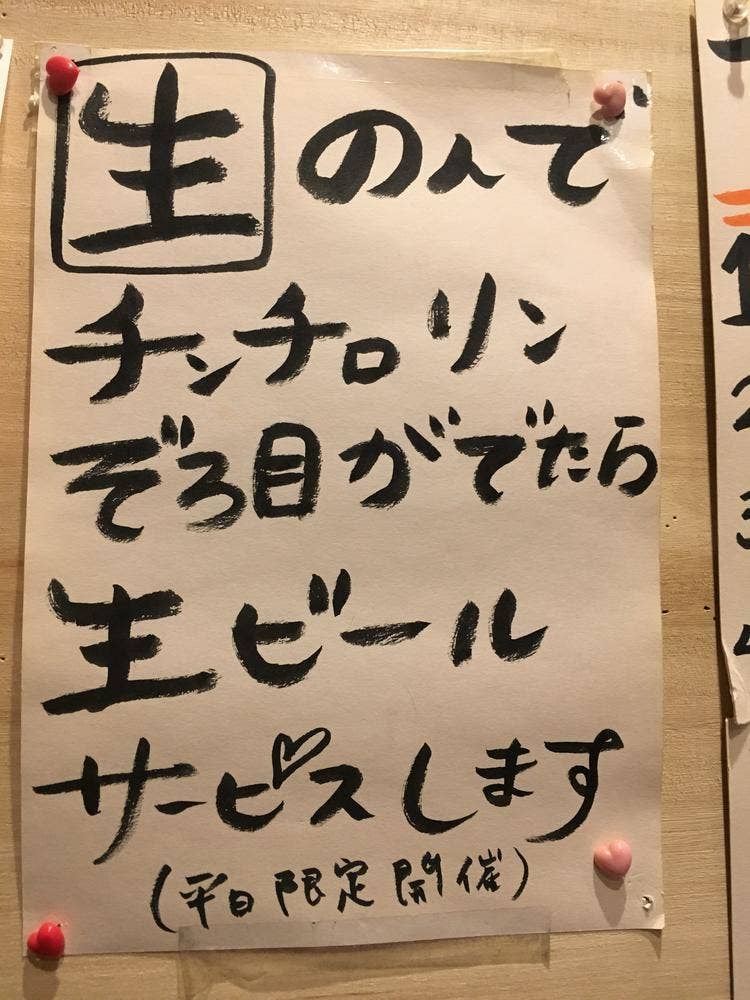 生のんで
チンチロリン
ぞろ目がでたら
生ビール
サービスします
(平日限定開催)